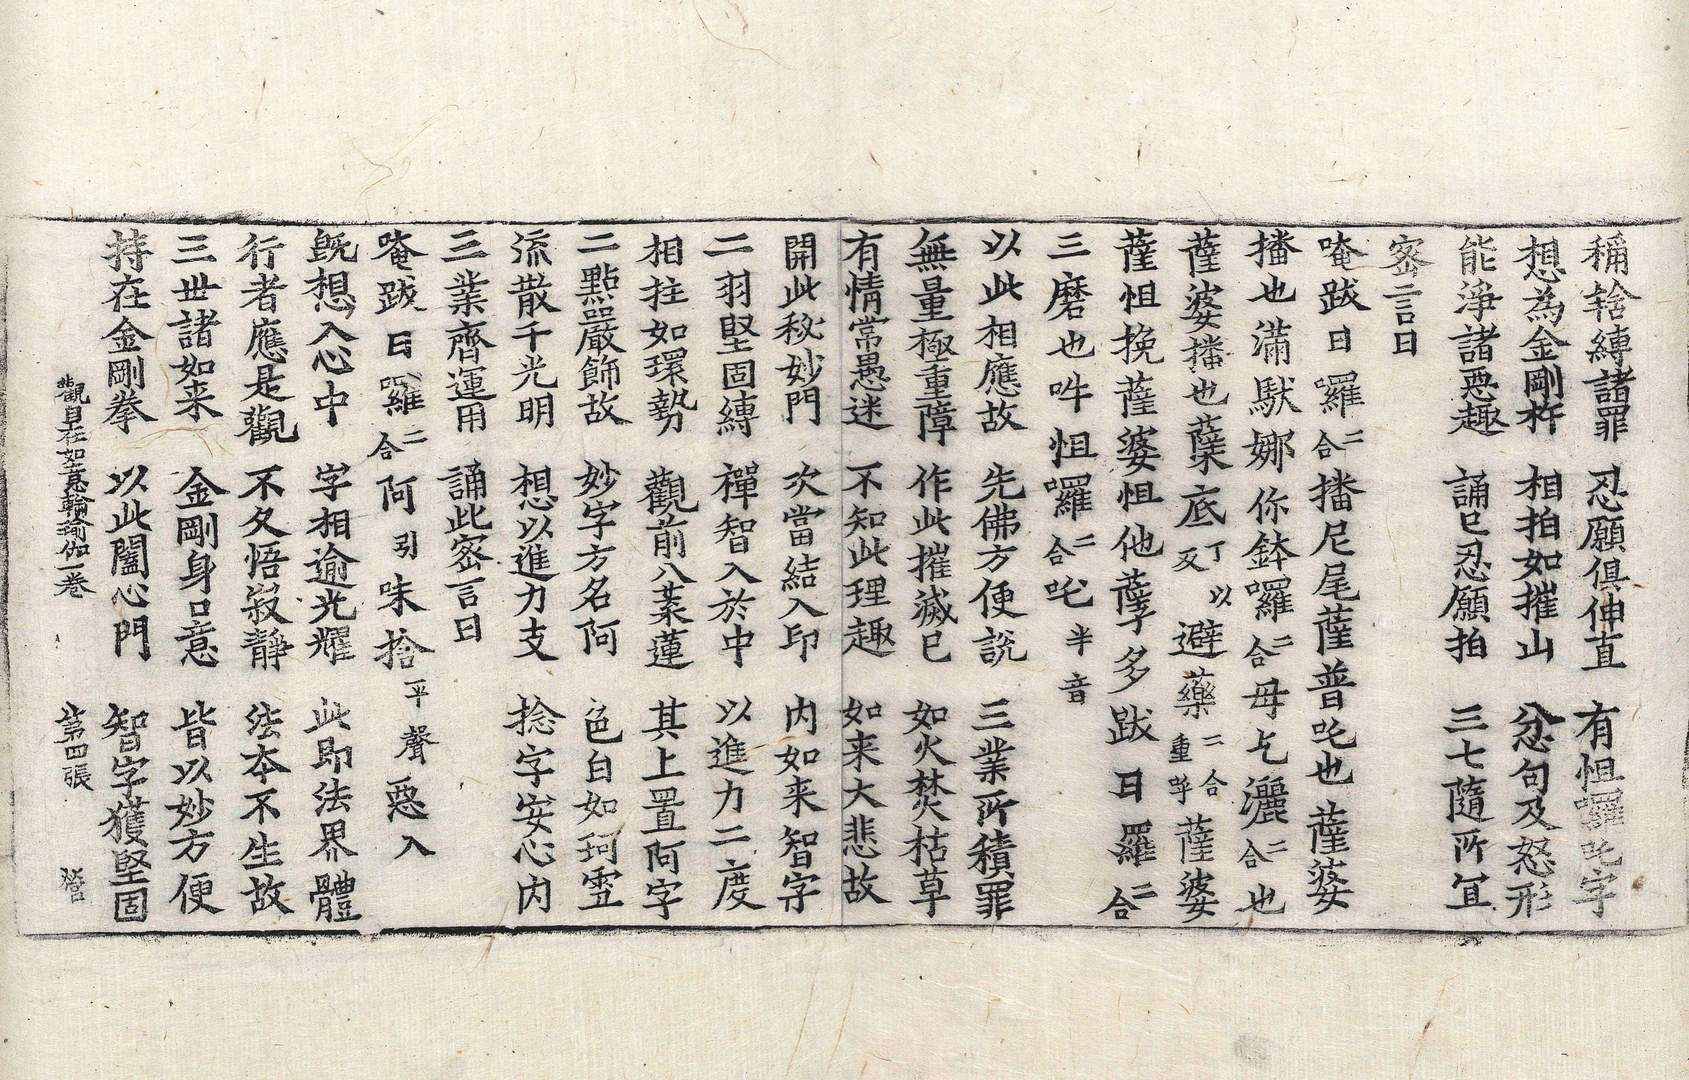 稱　縛諸罪　忍願俱伸直　有怛囉吒字
想為金剛杵　相拍如摧山　忿句及怒形
能淨諸惡趣　誦已忍願拍　三七隨所宜
密言曰
唵跋日囉二合播尼尾薩普吒也薩婆
播也滿馱娜你鉢囉二合母乞灑二合也
薩婆播也蘖底丁以反避藥二合重呼薩婆
薩怛挽薩婆怛他蘖多跋日羅二合
三磨也吽怛囉二合吒半音
以此相應故　先佛方便說　三業所積罪
無量極重障　作此摧滅已　如火焚枯草
有情常愚迷　不知此理趣　如来大悲故
開此秘妙門　次當結入印　内如来智字
二羽堅固縛　禪智入於中　以進力二度
相拄如環勢　觀前八葉蓮　其上置阿字
二點嚴飾故　妙字方名阿　色白如珂雪
流散千光明　想以進力支　捻字安心内
三業齊運用　誦此密言曰
唵跋日羅二合阿引味捨平聲惡入
既想入心中　字相逾光耀　此即法界體
行者應是觀　不久悟寂靜　法本不生故
三世諸如来　金剛身口意　皆以妙方便
持在金剛拳　以此闔心門　智字獲堅固
觀自在如意輪瑜伽一卷　第四張